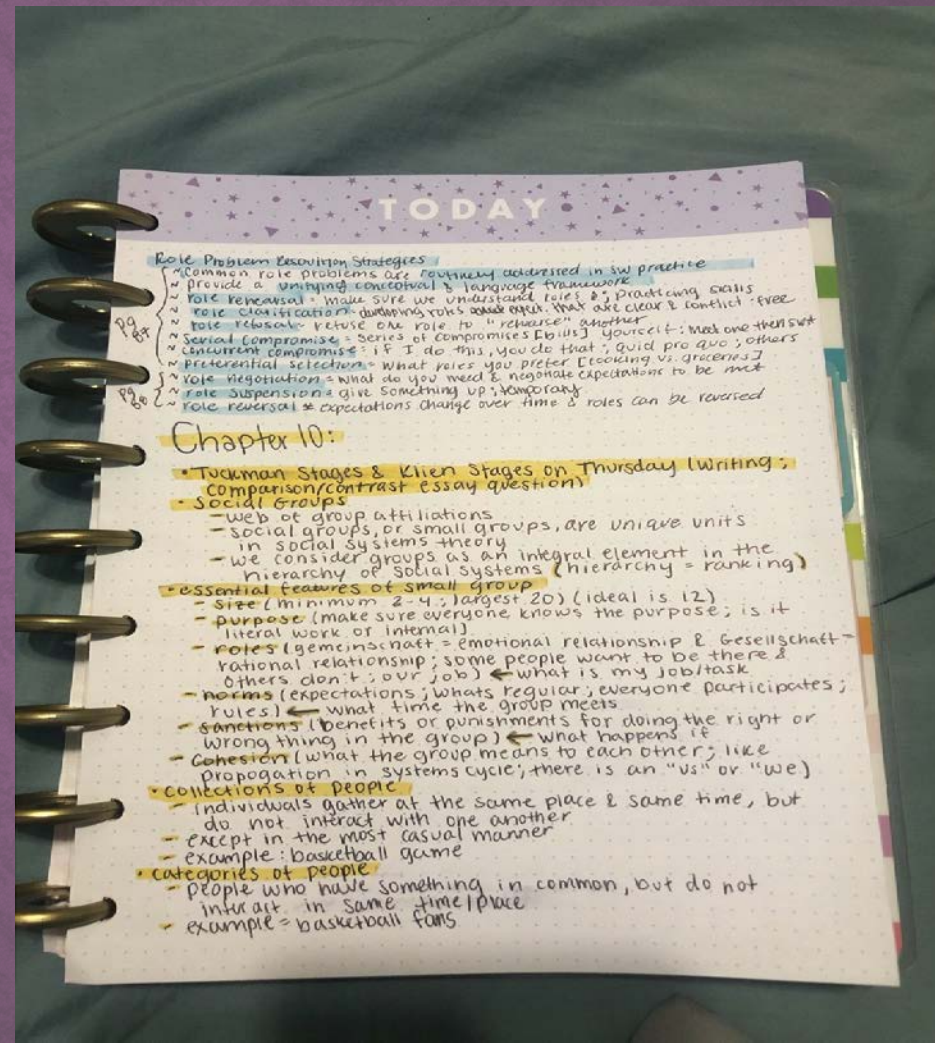 TODAY
Role Problem Resouition Strategies
~ Common role problems are routinely addressed in SW practice
~ provide a unifying conceptual & language framework
~ role rehearsal = make sure we understand roles & ; practicing skills
~ role clarification = developing roles that are clear & conflict-free
~ role refusal = refuse one role to "rehearse" another
~ Serial Compromise = series of compromises [bills] yourself : meet one then
~ concurrent compromise : if I do this, you do that ; quid pro quo ; others
pg
~ preferential selection = what roles you prefer [cooking vs. groceries]
~ role negotiation = what do you need & negotiate expectations to be met
~ role suspension = give something up ; temporary
pg
~ role reversal * expectations change over time & roles can be reversed
Chapter 10:
• Tuckman Stages & Klien Stages on Thursday (writing ;
comparison/contrast essay question)
• Social Groups
- web of group affiliations
- social groups, or small groups, are unique units
in social systems theory
- we consider groups as an integral element in the
hierarchy of social systems (hierarchy = ranking)
• essential features of small group
- size (minimum 2-4 ; largest 20) (ideal is 12)
- purpose (make sure everyone knows the purpose ; is it
literal work or internal)
- roles (gemeinschaft = emotional relationship & Gesellschaft-
rational relationship ; some people want to be there &
others don't ; our job) ← what is my job/task
- norms (expectations ; whats regular ; everyone participates ;
rules) ← what time the group meets
- sanctions (benefits or punishments for doing the right or
wrong thing in the group) ← what happens if
- Cohesion (what the group means to each other ; like
propogation in systems cycle ; there is an "us" or "we)
• collections of people
- individuals gather at the same place & same time, but
do not interact with one another
- except in the most casual manner
- example : basketball game
• categories of people
- people who have something in common, but do not
interact in same time/place
- example = basketball fans